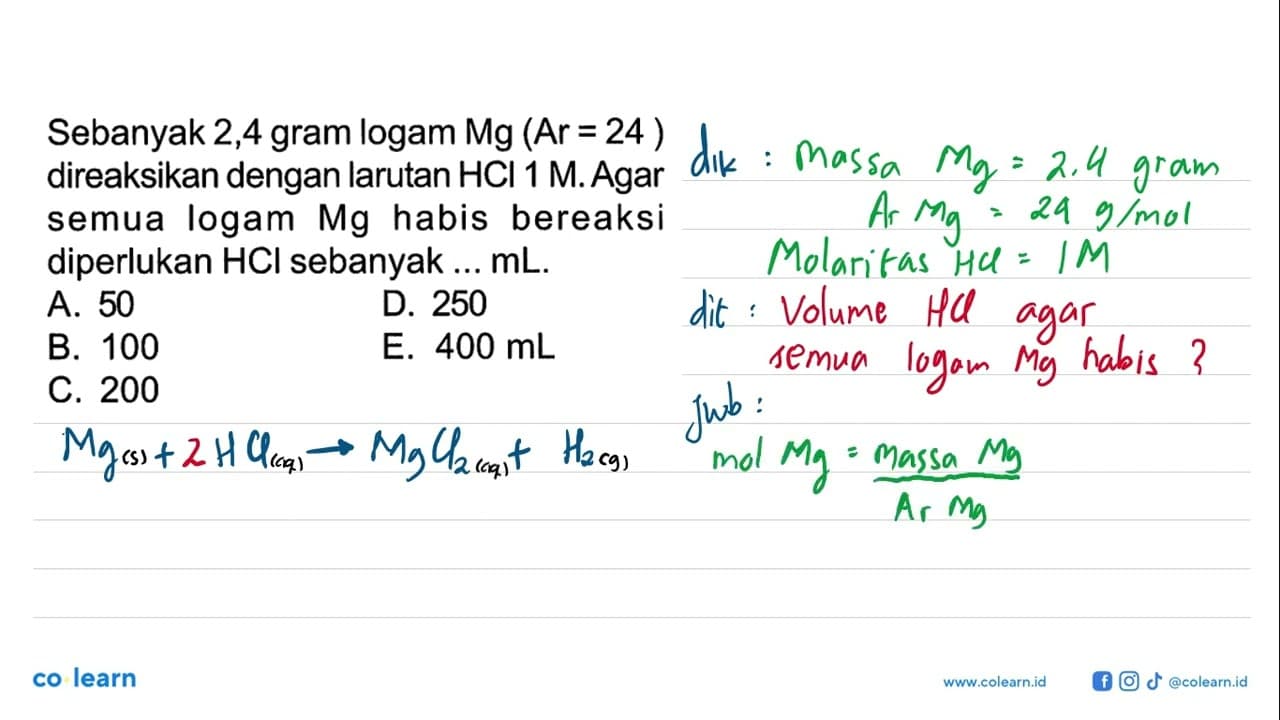 Sebanyak 2,4 gram logam Mg (Ar = 24 )
direaksikan dengan larutan HCl 1 M. Agar
semua logam Mg habis bereaksi
diperlukan HCl sebanyak ... mL.
A. 50 D. 250
B. 100 E. 400 mL
C. 200
Mg(s) + 2HCl(aq) → MgCl₂(aq) + H₂(g)
dik : Massa Mg = 2.4 gram
Ar Mg = 24 g/mol
Molaritas HCl = 1 M
dit : Volume HCl agar
semua logam Mg habis ?
Jwb :
mol Mg = massa Mg
Ar Mg
co learn
www.colearn.id @colearn.id